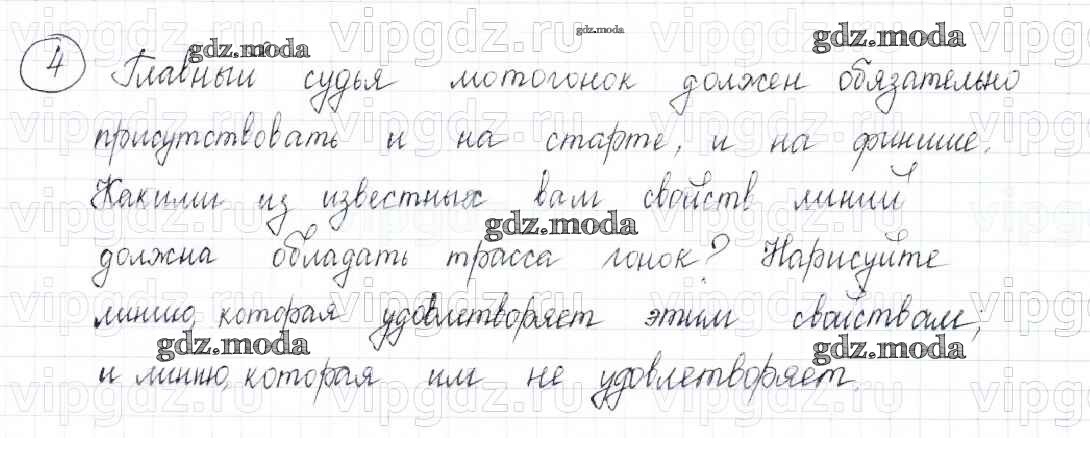 4 Главный судья мотогонок должен обязательно
присутствовать и на старте, и на финише.
Какими из известных вам свойств линий
должна обладать трасса гонок? Нарисуйте
линию, которая удовлетворяет этим свойствам,
и линию, которая им не удовлетворяет.
gdz.moda
gdz.moda
gdz.moda
gdz.moda
gdz.moda
gdz.moda
vipgdz.ru